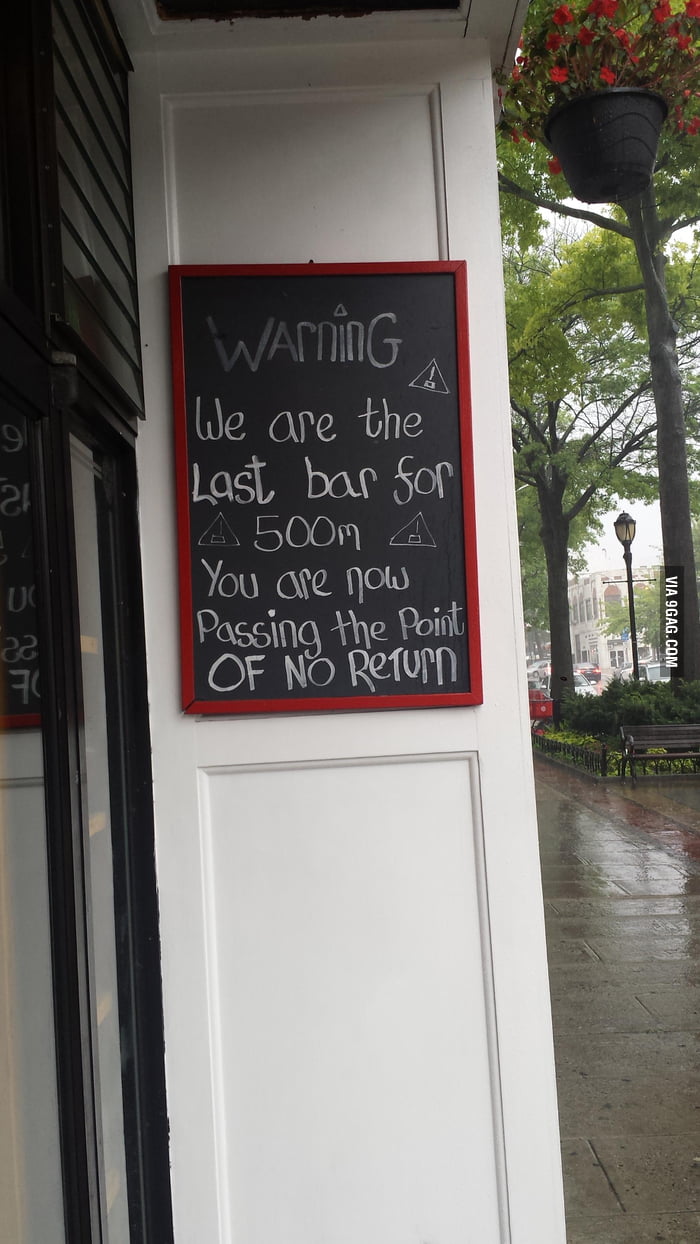 WArninG
We are the
Last bar for
500m
You are now
Passing the Point
OF NO Return
VIA 9GAG.COM